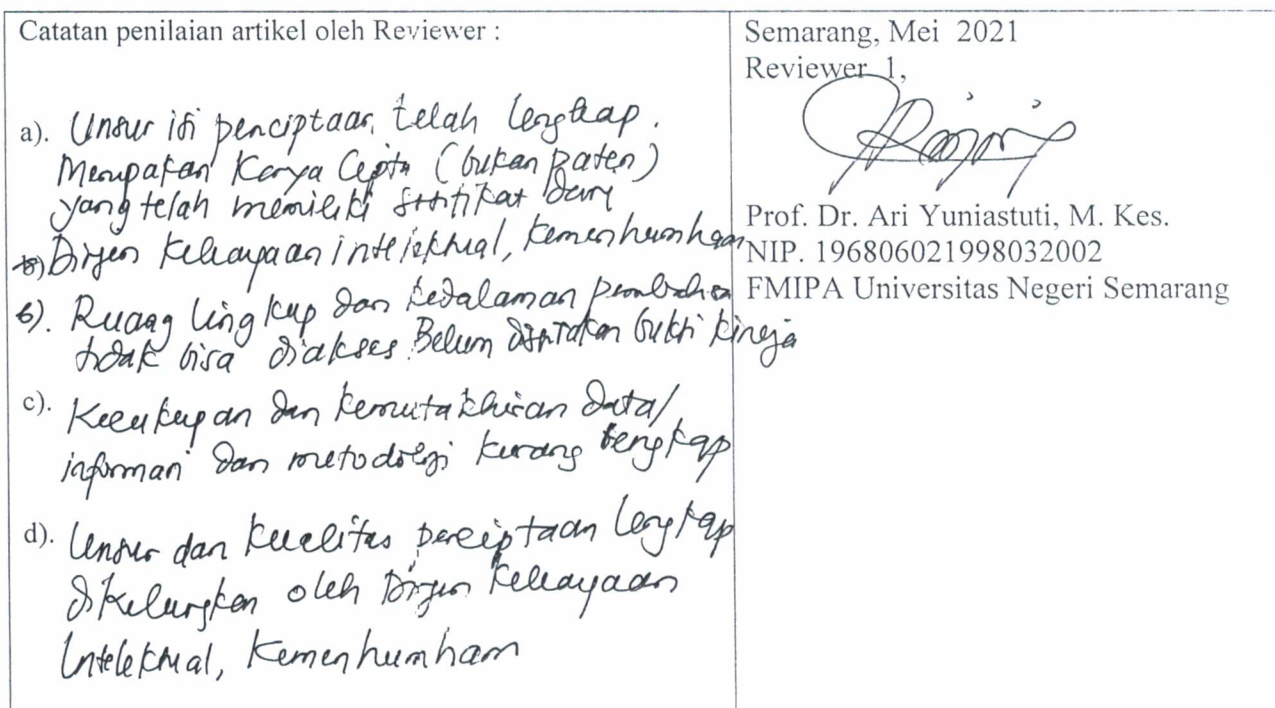 Catatan penilaian artikel oleh Reviewer :
a). Unsur isi penciptaan telah lengkap.
Merupakan Karya Cipta (bukan paten)
yang telah memiliki sertifikat dari
b) Dirjen Kekayaan intelektual, Kemenhumham
b). Ruang lingkup dan kedalaman pembahasa
tidak bisa diakses. Belum disertakan bukti kinerja
c). Kecukupan dan kemutakhiran data/
informasi dan metodologi kurang lengkap
d). Unsur dan kualitas penciptaan lengkap
dikeluarkan oleh Dirjen Kekayaan
Intelektual, Kemenhumham
Semarang, Mei 2021
Reviewer 1,
Prof. Dr. Ari Yuniastuti, M. Kes.
NIP. 196806021998032002
FMIPA Universitas Negeri Semarang